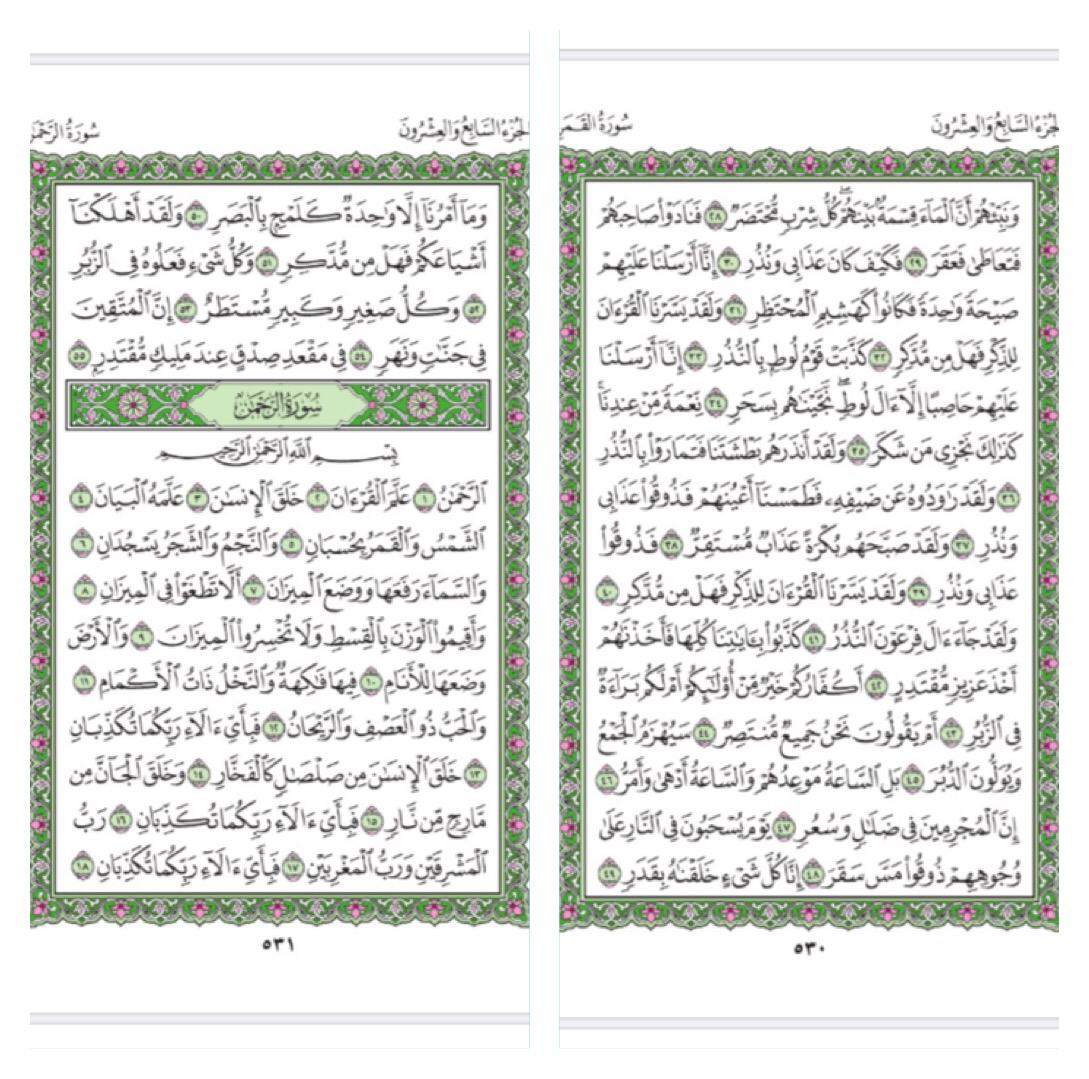 الجزء السابع والعشرون
سورة القمر
وَنَبِّئْهُمْ أَنَّ ٱلْمَآءَ قِسْمَةٌۢ بَيْنَهُمْ ۖ كُلُّ شِرْبٍ مُّحْتَضَرٌ ٢٨ فَنَادَوْا۟ صَاحِبَهُمْ
فَتَعَاطَىٰ فَعَقَرَ ٢٩ فَكَيْفَ كَانَ عَذَابِى وَنُذُرِ ٣٠ إِنَّآ أَرْسَلْنَا عَلَيْهِمْ
صَيْحَةً وَٰحِدَةً فَكَانُوا۟ كَهَشِيمِ ٱلْمُحْتَظِرِ ٣١ وَلَقَدْ يَسَّرْنَا ٱلْقُرْءَانَ
لِلذِّكْرِ فَهَلْ مِن مُّدَّكِرٍ ٣٢ كَذَّبَتْ قَوْمُ لُوطٍۭ بِٱلنُّذُرِ ٣٣ إِنَّآ أَرْسَلْنَا
عَلَيْهِمْ حَاصِبًا إِلَّآ ءَالَ لُوطٍ ۖ نَّجَّيْنَٰهُم بِسَحَرٍ ٣٤ نِّعْمَةً مِّنْ عِندِنَا ۚ
كَذَٰلِكَ نَجْزِى مَن شَكَرَ ٣٥ وَلَقَدْ أَنذَرَهُم بَطْشَتَنَا فَتَمَارَوْا۟ بِٱلنُّذُرِ
٣٦ وَلَقَدْ رَٰوَدُوهُ عَن ضَيْفِهِۦ فَطَمَسْنَآ أَعْيُنَهُمْ فَذُوقُوا۟ عَذَابِى
وَنُذُرِ ٣٧ وَلَقَدْ صَبَّحَهُم بُكْرَةً عَذَابٌ مُّسْتَقِرٌّ ٣٨ فَذُوقُوا۟
عَذَابِى وَنُذُرِ ٣٩ وَلَقَدْ يَسَّرْنَا ٱلْقُرْءَانَ لِلذِّكْرِ فَهَلْ مِن مُّدَّكِرٍ ٤٠
وَلَقَدْ جَآءَ ءَالَ فِرْعَوْنَ ٱلنُّذُرُ ٤١ كَذَّبُوا۟ بِـَٔايَٰتِنَا كُلِّهَا فَأَخَذْنَٰهُمْ
أَخْذَ عَزِيزٍ مُّقْتَدِرٍ ٤٢ أَكُفَّارُكُمْ خَيْرٌ مِّنْ أُو۟لَٰٓئِكُمْ أَمْ لَكُم بَرَآءَةٌ
فِى ٱلزُّبُرِ ٤٣ أَمْ يَقُولُونَ نَحْنُ جَمِيعٌ مُّنتَصِرٌ ٤٤ سَيُهْزَمُ ٱلْجَمْعُ
وَيُوَلُّونَ ٱلدُّبُرَ ٤٥ بَلِ ٱلسَّاعَةُ مَوْعِدُهُمْ وَٱلسَّاعَةُ أَدْهَىٰ وَأَمَرُّ ٤٦
إِنَّ ٱلْمُجْرِمِينَ فِى ضَلَٰلٍ وَسُعُرٍ ٤٧ يَوْمَ يُسْحَبُونَ فِى ٱلنَّارِ عَلَىٰ
وُجُوهِهِمْ ذُوقُوا۟ مَسَّ سَقَرَ ٤٨ إِنَّا كُلَّ شَىْءٍ خَلَقْنَٰهُ بِقَدَرٍ ٤٩
٥٣٠
الجزء السابع والعشرون
سورة الرحمن
وَمَآ أَمْرُنَآ إِلَّا وَٰحِدَةٌ كَلَمْحٍۭ بِٱلْبَصَرِ ٥٠ وَلَقَدْ أَهْلَكْنَآ
أَشْيَاعَكُمْ فَهَلْ مِن مُّدَّكِرٍ ٥١ وَكُلُّ شَىْءٍ فَعَلُوهُ فِى ٱلزُّبُرِ
٥٢ وَكُلُّ صَغِيرٍ وَكَبِيرٍ مُّسْتَطَرٌ ٥٣ إِنَّ ٱلْمُتَّقِينَ
فِى جَنَّٰتٍ وَنَهَرٍ ٥٤ فِى مَقْعَدِ صِدْقٍ عِندَ مَلِيكٍ مُّقْتَدِرٍۭ ٥٥
سُورَةُ الرَّحْمَٰن
بِسْمِ ٱللَّهِ ٱلرَّحْمَٰنِ ٱلرَّحِيمِ
ٱلرَّحْمَٰنُ ١ عَلَّمَ ٱلْقُرْءَانَ ٢ خَلَقَ ٱلْإِنسَٰنَ ٣ عَلَّمَهُ ٱلْبَيَانَ ٤
ٱلشَّمْسُ وَٱلْقَمَرُ بِحُسْبَانٍ ٥ وَٱلنَّجْمُ وَٱلشَّجَرُ يَسْجُدَانِ ٦
وَٱلسَّمَآءَ رَفَعَهَا وَوَضَعَ ٱلْمِيزَانَ ٧ أَلَّا تَطْغَوْا۟ فِى ٱلْمِيزَانِ ٨
وَأَقِيمُوا۟ ٱلْوَزْنَ بِٱلْقِسْطِ وَلَا تُخْسِرُوا۟ ٱلْمِيزَانَ ٩ وَٱلْأَرْضَ
وَضَعَهَا لِلْأَنَامِ ١٠ فِيهَا فَٰكِهَةٌ وَٱلنَّخْلُ ذَاتُ ٱلْأَكْمَامِ ١١
وَٱلْحَبُّ ذُو ٱلْعَصْفِ وَٱلرَّيْحَانُ ١٢ فَبِأَىِّ ءَالَآءِ رَبِّكُمَا تُكَذِّبَانِ
١٣ خَلَقَ ٱلْإِنسَٰنَ مِن صَلْصَٰلٍ كَٱلْفَخَّارِ ١٤ وَخَلَقَ ٱلْجَآنَّ مِن
مَّارِجٍ مِّن نَّارٍ ١٥ فَبِأَىِّ ءَالَآءِ رَبِّكُمَا تُكَذِّبَانِ ١٦ رَبُّ
ٱلْمَشْرِقَيْنِ وَرَبُّ ٱلْمَغْرِبَيْنِ ١٧ فَبِأَىِّ ءَالَآءِ رَبِّكُمَا تُكَذِّبَانِ ١٨
٥٣١